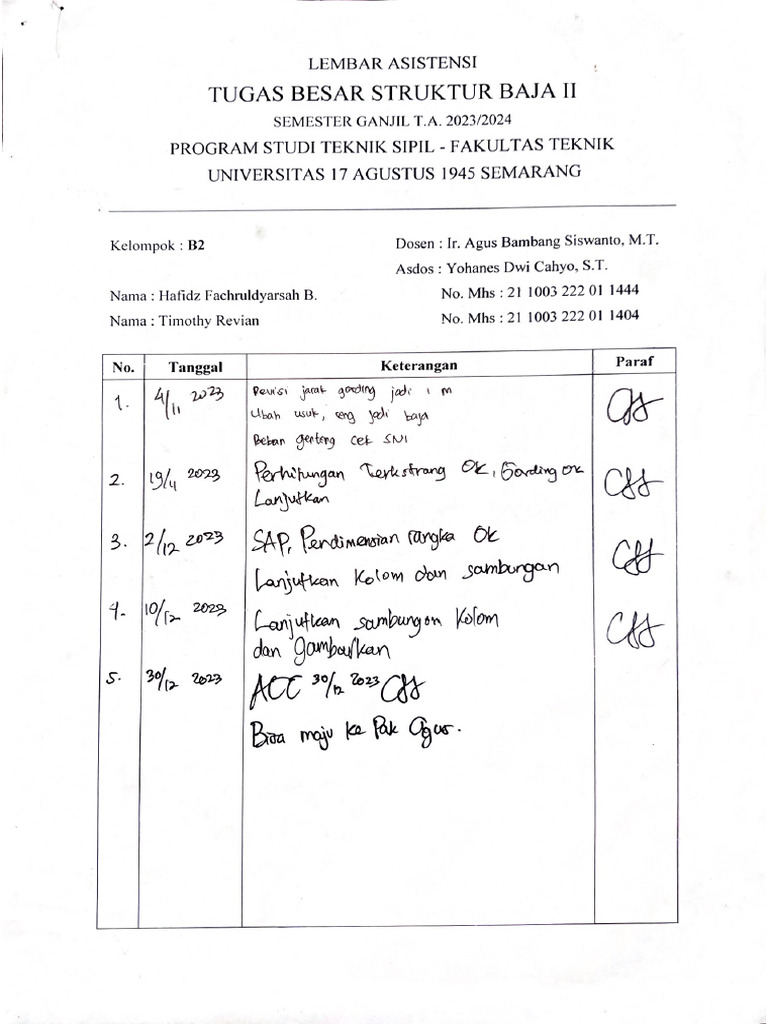 LEMBAR ASISTENSI
TUGAS BESAR STRUKTUR BAJA II
SEMESTER GANJIL T.A. 2023/2024
PROGRAM STUDI TEKNIK SIPIL - FAKULTAS TEKNIK
UNIVERSITAS 17 AGUSTUS 1945 SEMARANG
Kelompok : B2
Dosen : Ir. Agus Bambang Siswanto, M.T.
Asdos : Yohanes Dwi Cahyo, S.T.
Nama : Hafidz Fachruldyarsah B. No. Mhs : 21 1003 222 01 1444
Nama : Timothy Revian No. Mhs : 21 1003 222 01 1404
No. Tanggal Keterangan Paraf
1. 4/11 2023 Revisi jarak gording jadi 1 m
Ubah usuk, reng jadi baja
Beban genteng cek SNI
2. 19/4 2023 Perhitungan OK, Gording OK
Lanjutkan
3. 2/12 2023 SAP, Pendimensian rangka OK
Lanjutkan Kolom dan sambungan
4. 10/12 2023 Lanjutkan sambungan Kolom
dan gambarkan
5. 30/12 2023 ACC 30/12 2023
Bisa maju ke Pak Agus.